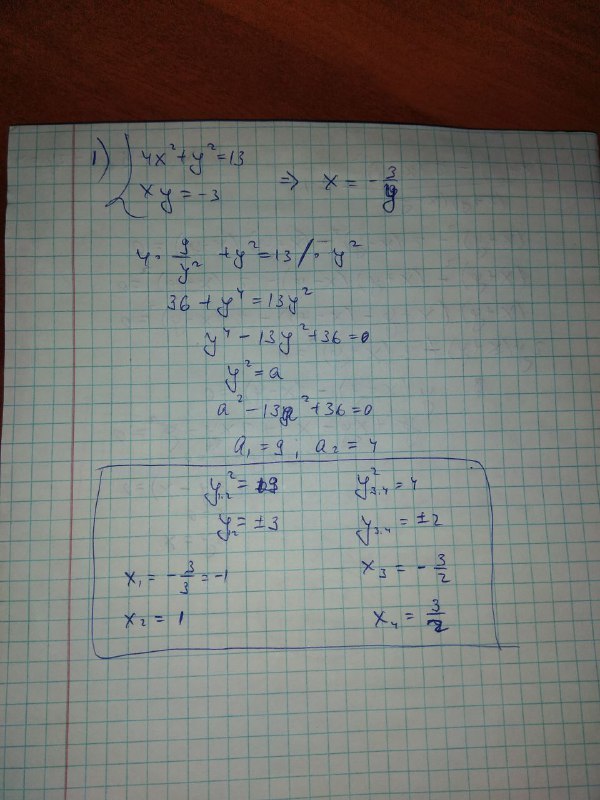 1) { 4x² + y² = 13
xy = -3 ⇒ x = -3/y
4 · 9/y² + y² = 13 / · y²
36 + y⁴ = 13y²
y⁴ - 13y² + 36 = 0
y² = a
a² - 13a² + 36 = 0
a₁ = 9, a₂ = 4
y²₁.₂ = 9 y²₃.₄ = 4
y₁₂ = ±3 y₃.₄ = ±2
x₁ = -3/3 = -1 x₃ = -3/2
x₂ = 1 x₄ = 3/2